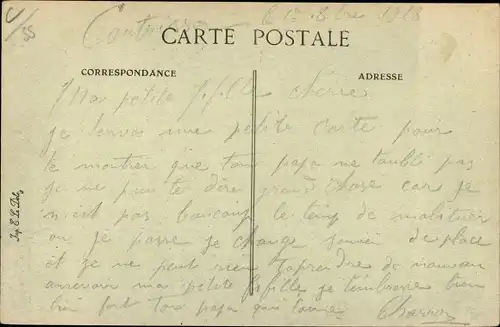 CARTE POSTALE
CORRESPONDANCE
ADRESSE
Ma petite fifille chérie
je tenvoi une petite carte pour
te montrer que ton papa ne toubli pas
je ne puis te dire grand chose car je
n'est pas baucoup le temp de
ou je passe je change souvein de place
et je ne peut rien taprendre de nouveau
aurevoir ma petite fifille je tembrasse bien
bin fort ton papa qui taime